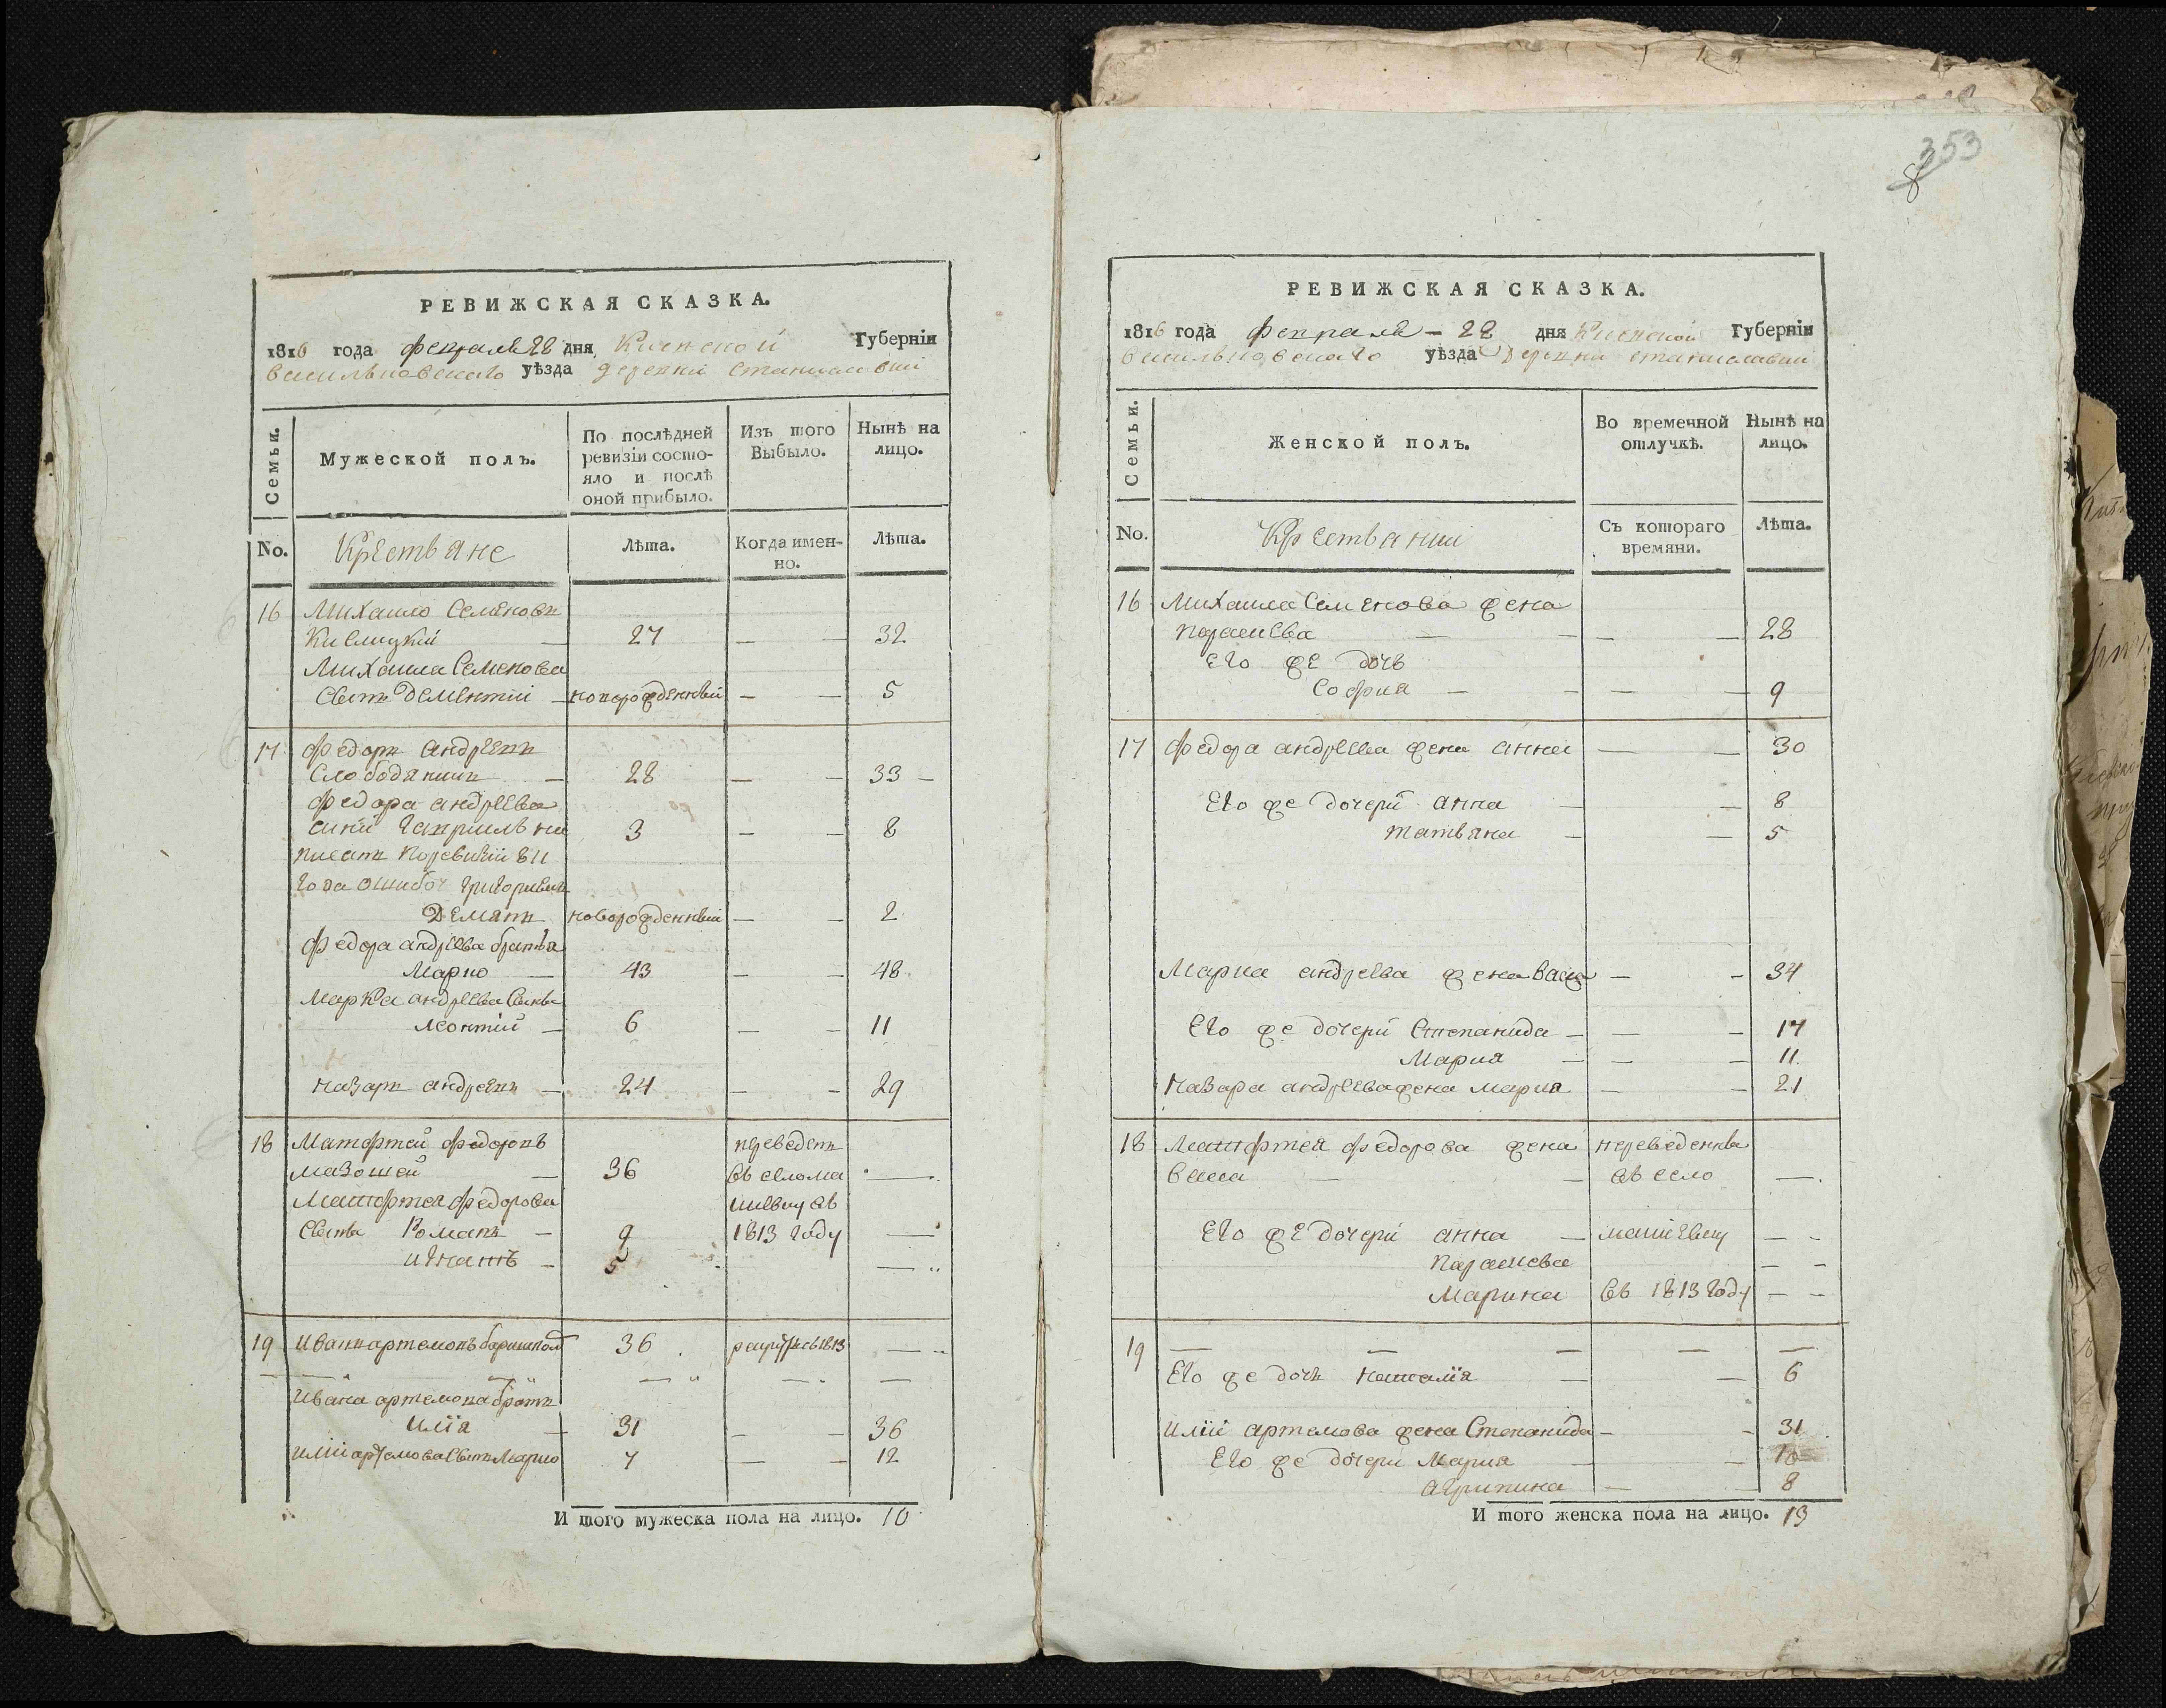 353
8
РЕВИЖСКАЯ СКАЗКА.
1816 года февраля 28 дня Киевской Губернїи
васильковскаго уѣзда деревни Станиславки
Семьи.
Мужеской полъ.
По послѣдней ревизїи состо-
яло и послѣ
оной прибыло.
Изъ того
Выбыло.
Нынѣ на
лицо.
No.
Крестьяне
Лѣта.
Когда имен-
но.
Лѣта.
16 Михайло Семеновъ
Кислицкий — 27 — — 32
Михайла Семенова
Сынъ Дементий — новорожденный — — 5
17 Федоръ андреевъ
Слободяникъ — 28 — — 33 —
Федора андреева
сини Гаврилъ не 3 — — 8
писанъ поревизии 811
года ошибоч григориемъ
Демянъ новорожденный — — 2
Федора андреева братья
Марко — 43 — — 48
Марка андреева Сынъ
Леонтий — 6 — — 11
Назаръ андреевъ — 24 — — 29
18 Матфтей Федоровъ переведенъ
мазошей — 36 въ село ма —
Матфтея Федорова шеевку въ
Сынъ Романъ — 9 1813 году —
игнатъ — 5 —
19 Иванъ артемовъ 36 рекрутъ въ 1813 —
Ивана артемова братъ
илїя — 31 — — 36
илии артемова Сынъ Марко 7 — — 12
И того мужеска пола на лицо. 10
РЕВИЖСКАЯ СКАЗКА.
1816 года февраля — 28 дня Киевской Губернїи
васильковскаго уѣзда деревни станиславки
Семьи.
Женской полъ.
Во времечной
отлучкѣ.
Нынѣ на
лицо.
No.
Крестьянки
Съ котораго
времяни.
Лѣта.
16 Михайла Семенова жена
параскева — — — — 28
Его же дочь
София — — — — 9
17 Федора андреева жена анна — — 30
Его же дочери анна — — 8
татьяна — — 5
Марка андреева жена васа — — 34
Его же дочери Степанида — — — 17
Мария — — — 11
Назара андреева жена мария — — 21
18 Матфтея Федорова жена переведенна
васса — — въ село —
Его же дочери анна — машеевку — —
параскева — —
Марина въ 1813 году — —
19 — — — —
Его же дочь наталїя — — 6
илїи артемова жена Степанида — — 31
Его же дочери Мария — — 10
агрипина — — 8
И того женска пола на лицо. 13